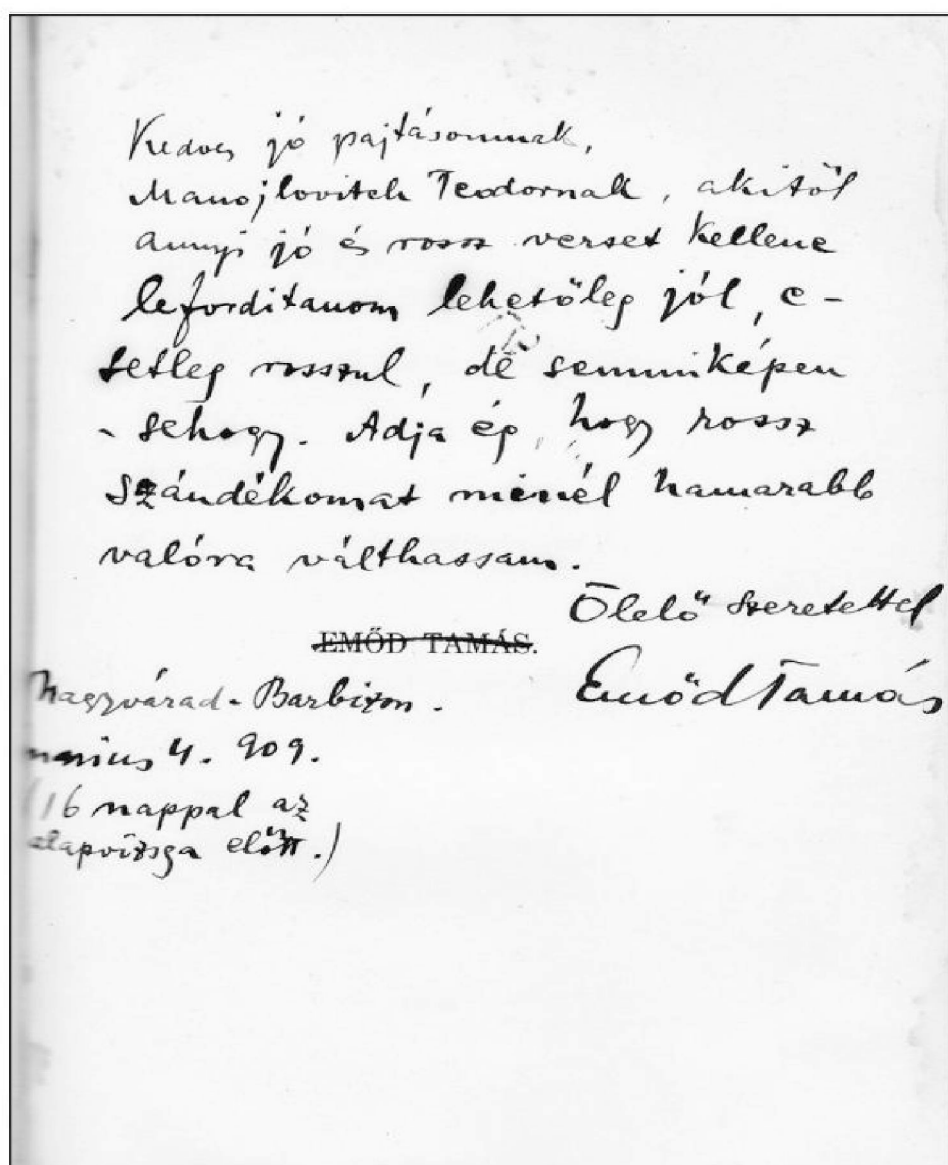 Kedves jó pajtásomnak,
Manojlovitch Teodornak, akitől
annyi jó és rossz verset kellene
lefordítanom lehetőleg jól, e-
setleg rosszul, de semmiképen
- sehogy. Adja ég, hogy rossz
szándékomat minél hamarabb
valóra válthassam.
Ölelő szeretettel
EMŐD TAMÁS.
Emőd Tamás
Nagyvárad-Barbizon.
4. 909.
(16 nappal az
alapvizsga előtt.)